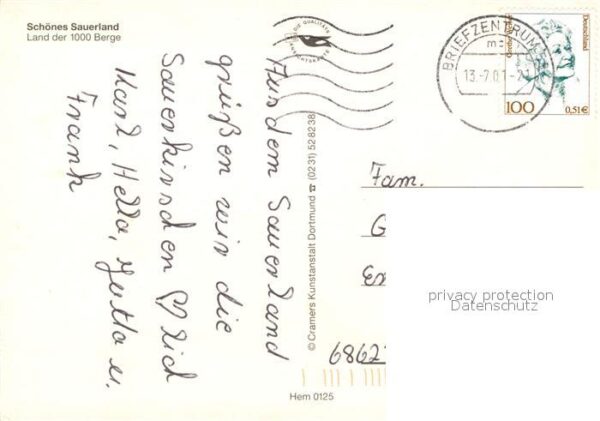 Schönes Sauerland
Land der 1000 Berge
Aus dem Sauerland
grüßen wir die
Sauerkirschen ♡lich
Karl, Hella, Jutta u.
Frank
© Cramers Kunstanstalt Dortmund ☎ (0231) 528238
Hem 0125
BRIEFZENTRUM
13.-7.01-21
Deutschland
100
0,51€
Fam.
G
Em
6862
privacy protection
Datenschutz